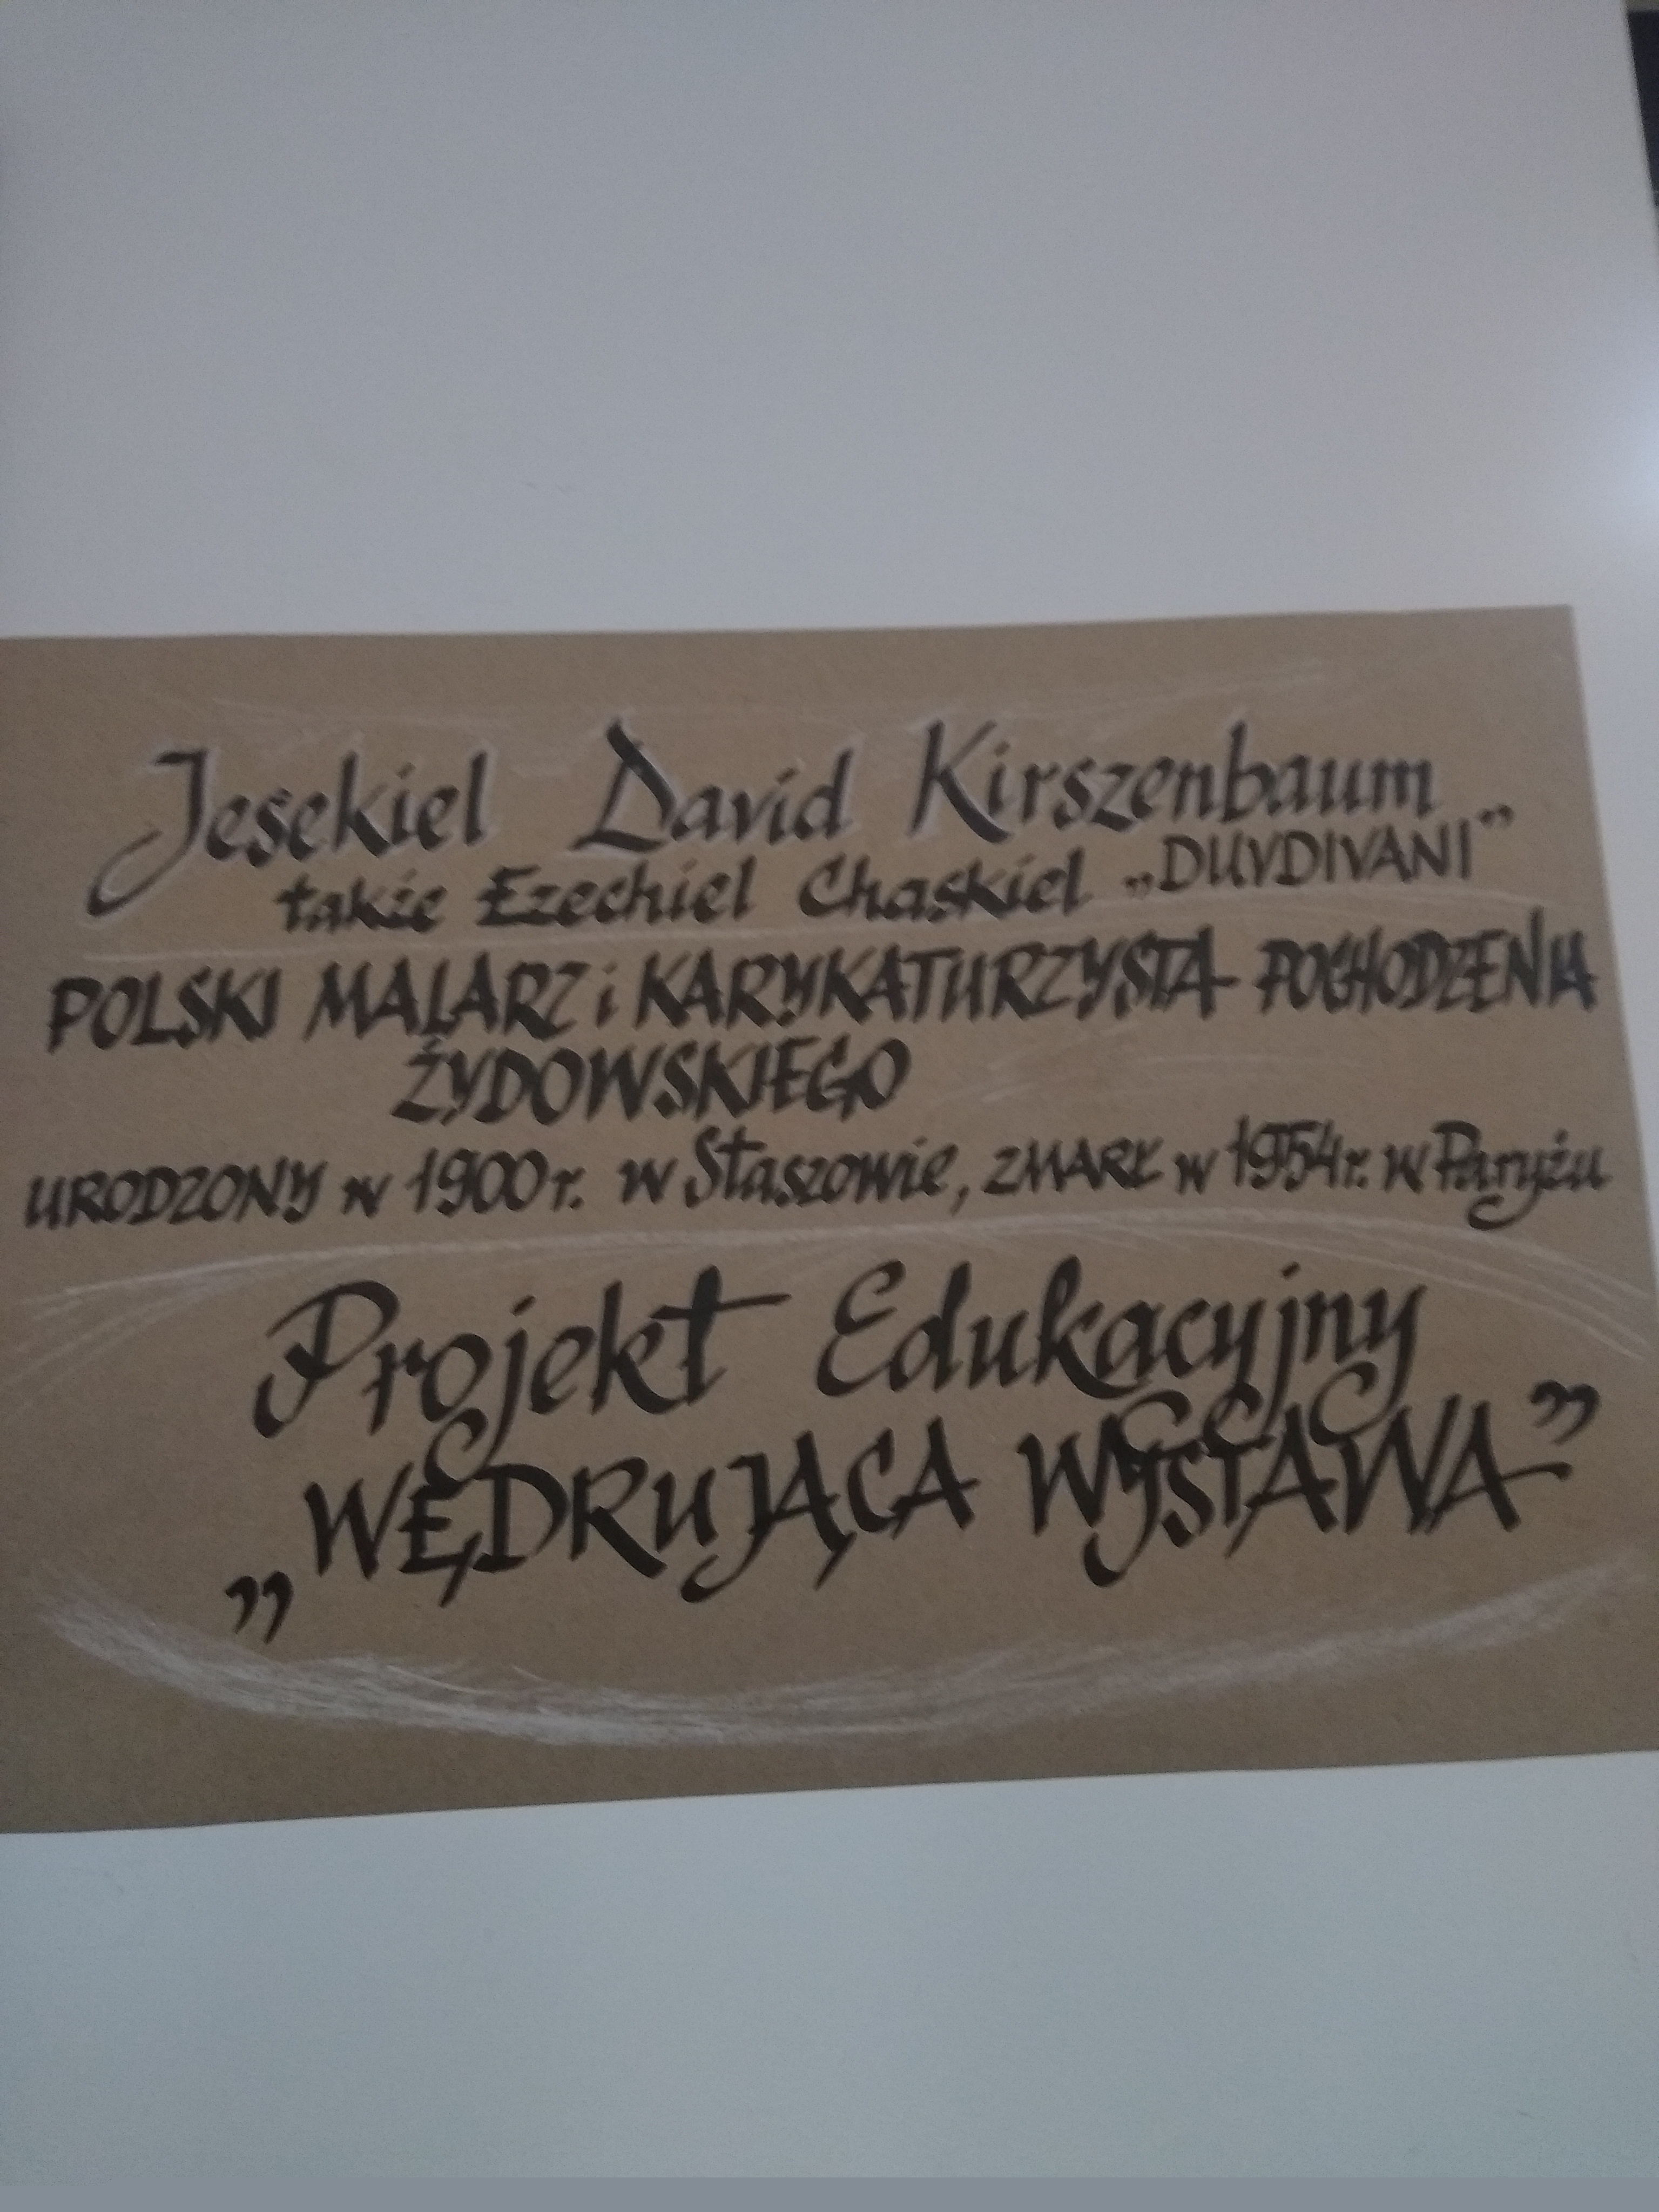 Jesekiel David Kirszenbaum
także Ezechiel Chaskiel „DUVDIVANI”
POLSKI MALARZ i KARYKATURZYSTA POCHODZENIA
ŻYDOWSKIEGO
URODZONY w 1900 r. w Staszowie, ZMARŁ w 1954 r. w Paryżu
Projekt Edukacyjny
„WĘDRUJĄCA WYSTAWA”